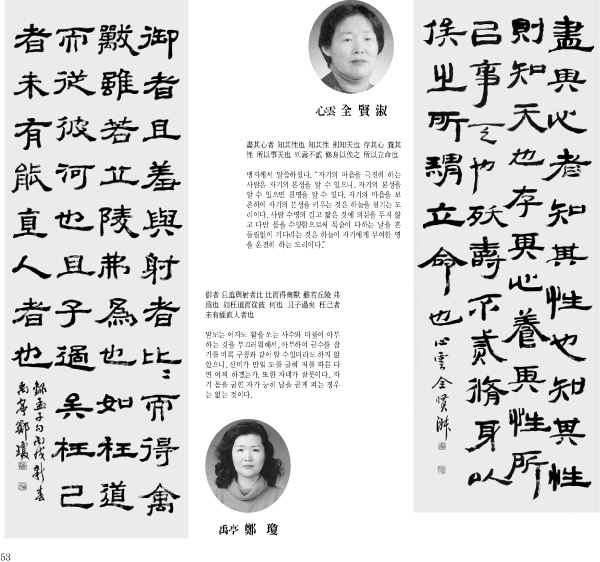 盡其心者知其性也知其性
則知天也存其心養其性所
㠯事天也殀壽不貳脩身以
俟之所謂立命也 心雲全賢淑
心雲 全賢淑
盡其心者 知其性也 知其性 則知天也 存其心 養其
性 所以事天也 殀壽不貳 修身以俟之 所以立命也
맹자께서 말씀하셨다. “자기의 마음을 극진히 하는
사람은 자기의 본성을 알 수 있으니, 자기의 본성을
알 수 있으면 천명을 알 수 있다. 자기의 마음을 보
존하여 자기의 본성을 키우는 것은 하늘을 섬기는 도
리이다. 사람 수명의 길고 짧은 것에 의문을 두지 않
고 다만 몸을 수양함으로써 목숨이 다하는 날을 흔
들림없이 기다리는 것은 하늘이 자기에게 부여한 명
을 온전히 하는 도리이다.”
御者 且羞與射者比 比而得禽獸 雖若丘陵 弗
爲也 如枉道而從彼 何也 且子過矣 枉己者
未有能直人者也
말모는 어자도 활을 쏘는 사수와 더불어 아부
하는 것을 부끄러워해서, 아부하여 금수를 잡
기를 비록 구릉과 같이 할 수 있더라도 하지 않
았으니, 선비가 만일 도를 굽혀 저를 따른 다
면 어찌 하겠는가. 또한 자네가 잘못이다. 자
기 몸을 굽힌 자가 능히 남을 곧게 펴는 경우
는 없는 것이다.
禹亭 鄭 瓊
御者且羞與射者比比而得禽
獸雖若丘陵弗為也如枉道
而從彼何也且子過矣枉己
者未有能直人者也
錄孟子句丙戌新春
禹亭鄭瓊
53